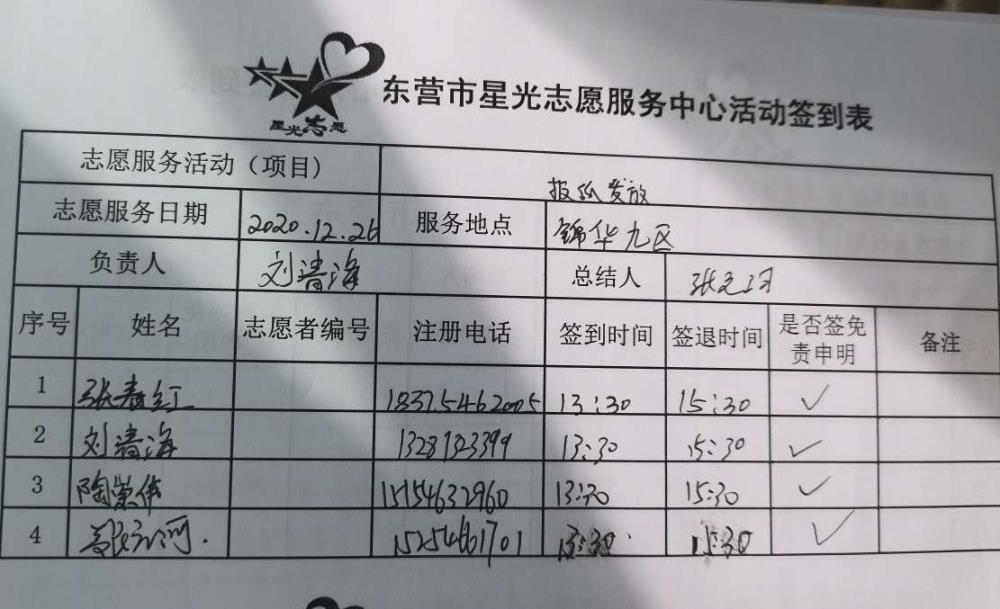 星光志愿
东营市星光志愿服务中心活动签到表
志愿服务活动（项目） 报纸发放
志愿服务日期 2020.12.26 服务地点 锦华九区
负责人 刘清海 总结人
序号 姓名 志愿者编号 注册电话 签到时间 签退时间 是否签免责申明 备注
1 张春红 13:30 15:30 ✓
2 刘清海 13:30 15:30 ✓
3 陶崇伟 15154632960 13:30 15:30 ✓
4 15254661701 13:30 15:30 ✓